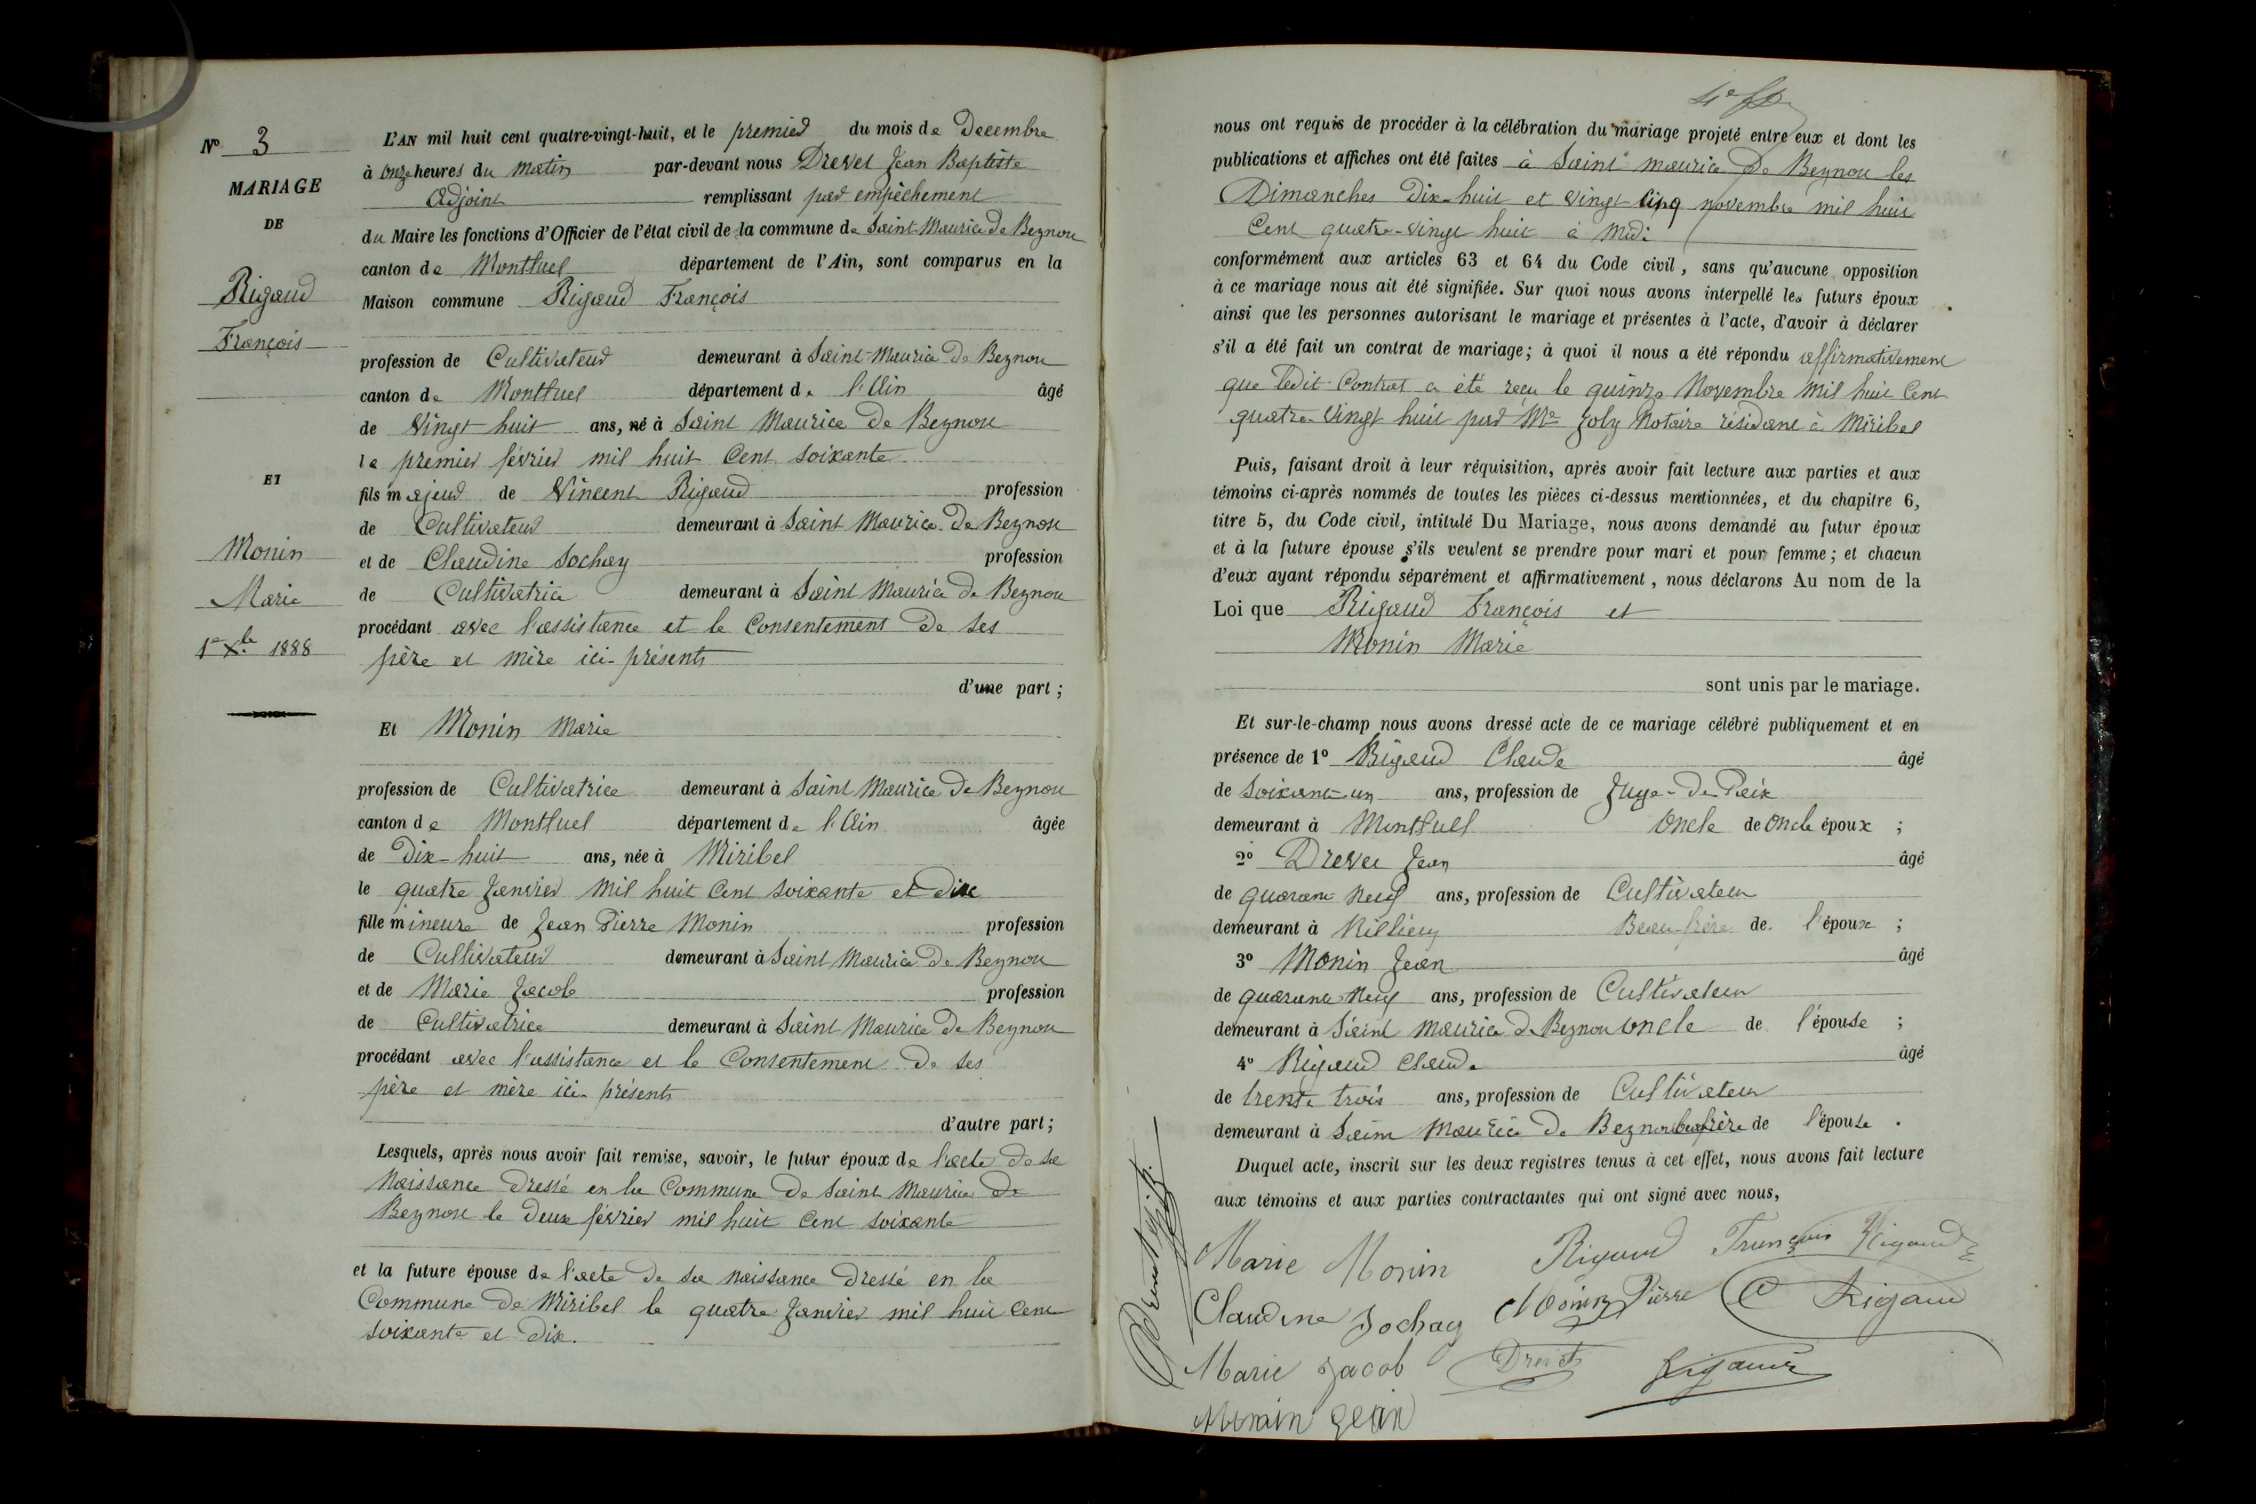 Nº 3
MARIAGE
DE
Rigaud
François
ET
Monin
Marie
1er Xbre 1888
L'AN mil huit cent quatre-vingt-huit, et le premier du mois de Decembre
à onze heures du matin par-devant nous Drevet Jean Baptiste
Adjoint remplissant par empêchement
du Maire les fonctions d'Officier de l'état civil de la commune de Saint-Maurice de Beynou
canton de Montluel département de l'Ain, sont comparus en la
Maison commune Rigaud François
profession de Cultivateur demeurant à Saint-Maurice de Beynou
canton de Montluel département de l'Ain âgé
de Vingt huit ans, né à Saint Maurice de Beynou
le premier février mil huit Cent soixante
fils majeur de Vincent Rigaud profession
de Cultivateur demeurant à Saint Maurice de Beynou
et de Claudine Jochay profession
de Cultivatrice demeurant à Saint Maurice de Beynou
procédant avec l'assistance et le Consentement de ses
père et mère ici-présents
d'une part ;
Et Monin Marie
profession de Cultivatrice demeurant à Saint Maurice de Beynou
canton de Montluel département de l'Ain âgée
de dix-huit ans, née à Miribel
le quatre Janvier mil huit Cent soixante et dix
fille mineure de Jean Pierre Monin profession
de Cultivateur demeurant à Saint Maurice de Beynou
et de Marie Jacob profession
de Cultivatrice demeurant à Saint Maurice de Beynou
procédant avec l'assistance et le Consentement de ses
père et mère ici-présents
d'autre part ;
Lesquels, après nous avoir fait remise, savoir, le futur époux de l'acte de sa
Naissance dressé en la Commune de Saint Maurice de
Beynou le deux février mil huit Cent soixante
et la future épouse de l'acte de sa naissance dressé en la
Commune de Miribel le quatre Janvier mil huit Cent
soixante et dix.
nous ont requis de procéder à la célébration du mariage projeté entre eux et dont les
publications et affiches ont été faites à Saint maurice de Beynou les
Dimanches Dix-huit et Vingt Cinq novembre mil huit
Cent quatre-vingt huit à Midi
conformément aux articles 63 et 64 du Code civil, sans qu'aucune opposition
à ce mariage nous ait été signifiée. Sur quoi nous avons interpellé les futurs époux
ainsi que les personnes autorisant le mariage et présentes à l'acte, d'avoir à déclarer
s'il a été fait un contrat de mariage ; à quoi il nous a été répondu affirmativement
que ledit Contrat a été reçu le quinze Novembre mil huit Cent
quatre-vingt huit par Me Joly Notaire résidant à Miribel
Puis, faisant droit à leur réquisition, après avoir fait lecture aux parties et aux
témoins ci-après nommés de toutes les pièces ci-dessus mentionnées, et du chapitre 6,
titre 5, du Code civil, intitulé Du Mariage, nous avons demandé au futur époux
et à la future épouse s'ils veulent se prendre pour mari et pour femme ; et chacun
d'eux ayant répondu séparément et affirmativement, nous déclarons Au nom de la
Loi que Rigaud François et
Monin Marie
sont unis par le mariage.
Et sur-le-champ nous avons dressé acte de ce mariage célébré publiquement et en
présence de 1º Rigaud Claude âgé
de soixante-un ans, profession de Juge-de-Paix
demeurant à Montluel Oncle de Oncle époux ;
2º Drevet Jean âgé
de quarante neuf ans, profession de Cultivateur
demeurant à Rillieux Beau-frère de l'époux ;
3º Monin Jean âgé
de quarante-neuf ans, profession de Cultivateur
demeurant à Saint maurice de Beynou Oncle de l'épouse ;
4º Rigaud Claude âgé
de trente trois ans, profession de Cultivateur
demeurant à Saint Maurice de Beynou beaufrère de l'épouse .
Duquel acte, inscrit sur les deux registres tenus à cet effet, nous avons fait lecture
aux témoins et aux parties contractantes qui ont signé avec nous,
Marie Monin Rigaud François Rigaud
Claudine Jochay Monin Pierre C Rigaud
Marie Jacob Drevet Rigaud
Monin Jean